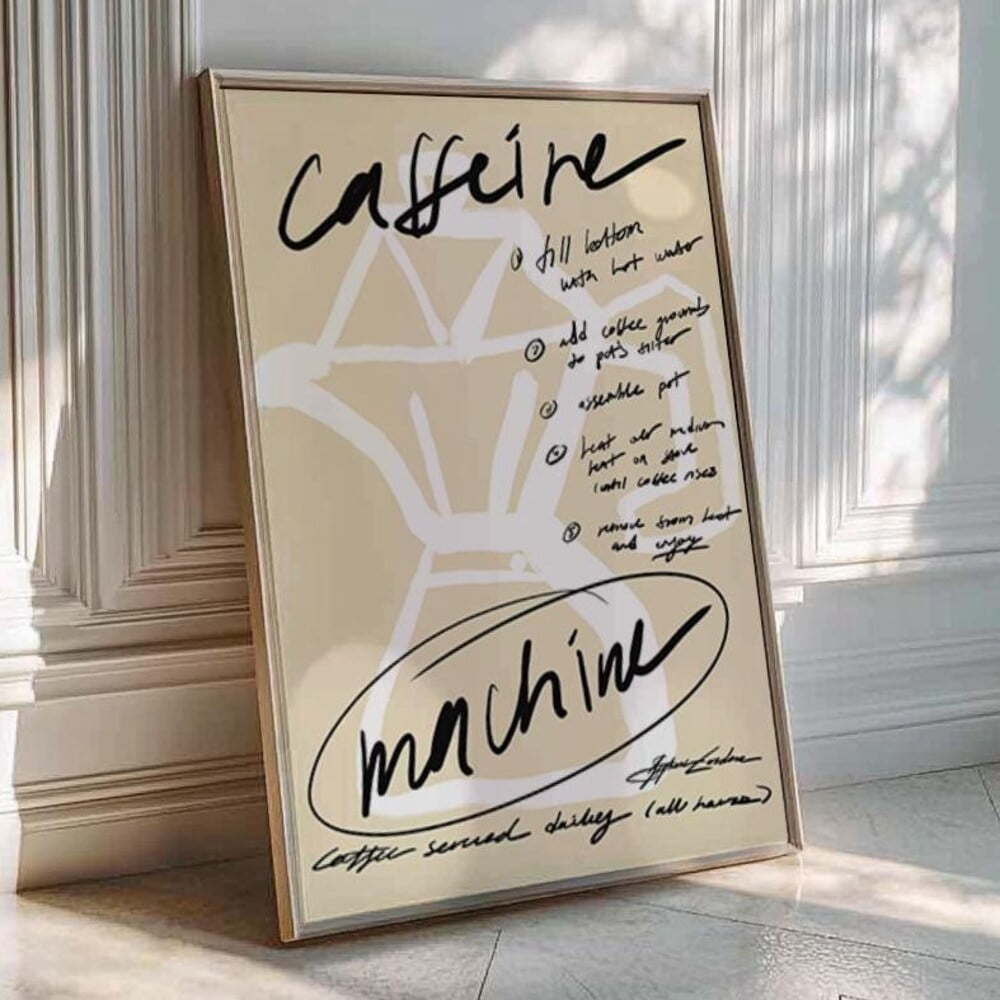 caffeine
① fill bottom
with hot water
② add coffee grounds
to pot's filter
③ assemble pot
④ heat over medium
heat on stove
(until coffee rises
⑤ remove from heat
and enjoy
machine
coffee served daily (all hours)